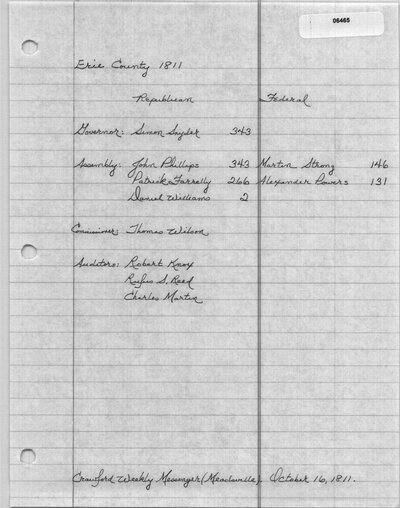 06465
Erie County 1811
Republican Federal
Governor: Simon Snyder 343
Assembly: John Phillips 343 Martin Strong 146
Patrick Farrelly 266 Alexander Powers 131
Daniel Williams 2
Commissioner: Thomas Wilson
Auditors: Robert Knox
Rufus S. Reed
Charles Martin
Crawford Weekly Messenger (Meadville). October 16, 1811.